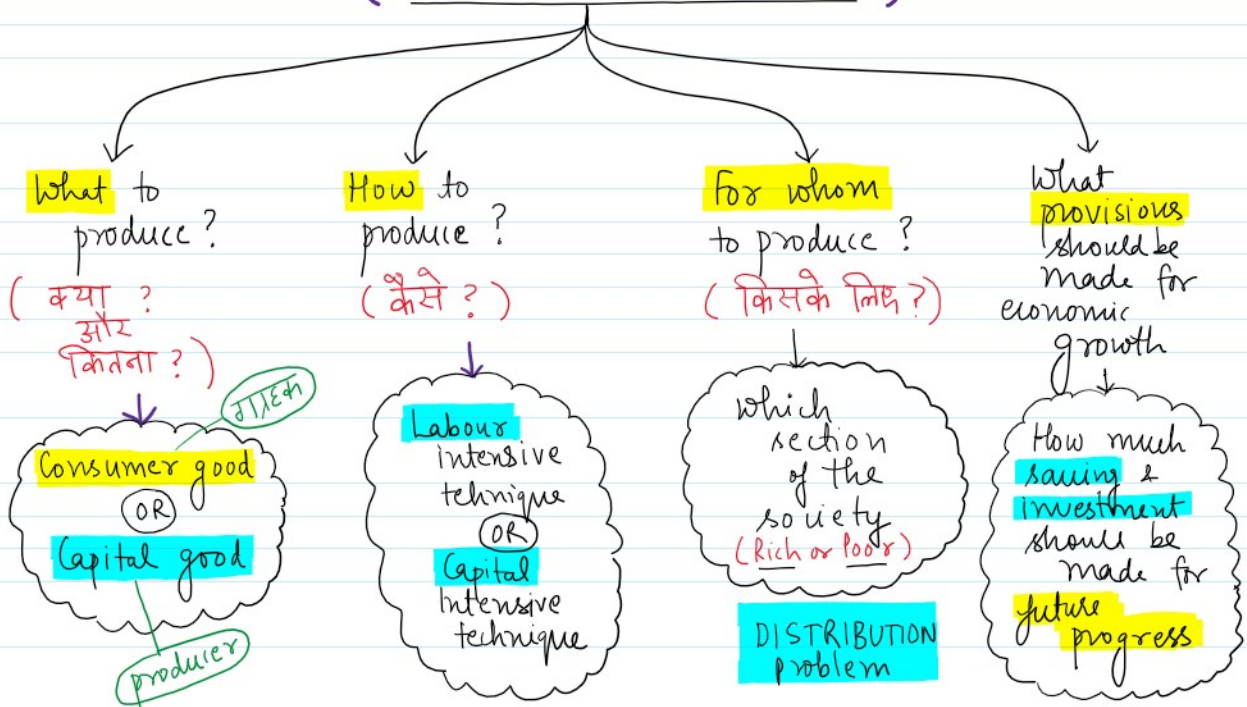 What to
produce?
( क्या ?
और
कितना ? )
ग्राहक
Consumer good
OR
Capital good
producer
How to
produce?
( कैसे ? )
Labour
intensive
technique
OR
Capital
Intensive
technique
For whom
to produce ?
( किसके लिए ? )
Which
section
of the
society
(Rich or Poor)
DISTRIBUTION
problem
What
provisions
should be
made for
economic
growth
How much
saving &
investment
should be
made for
future
progress